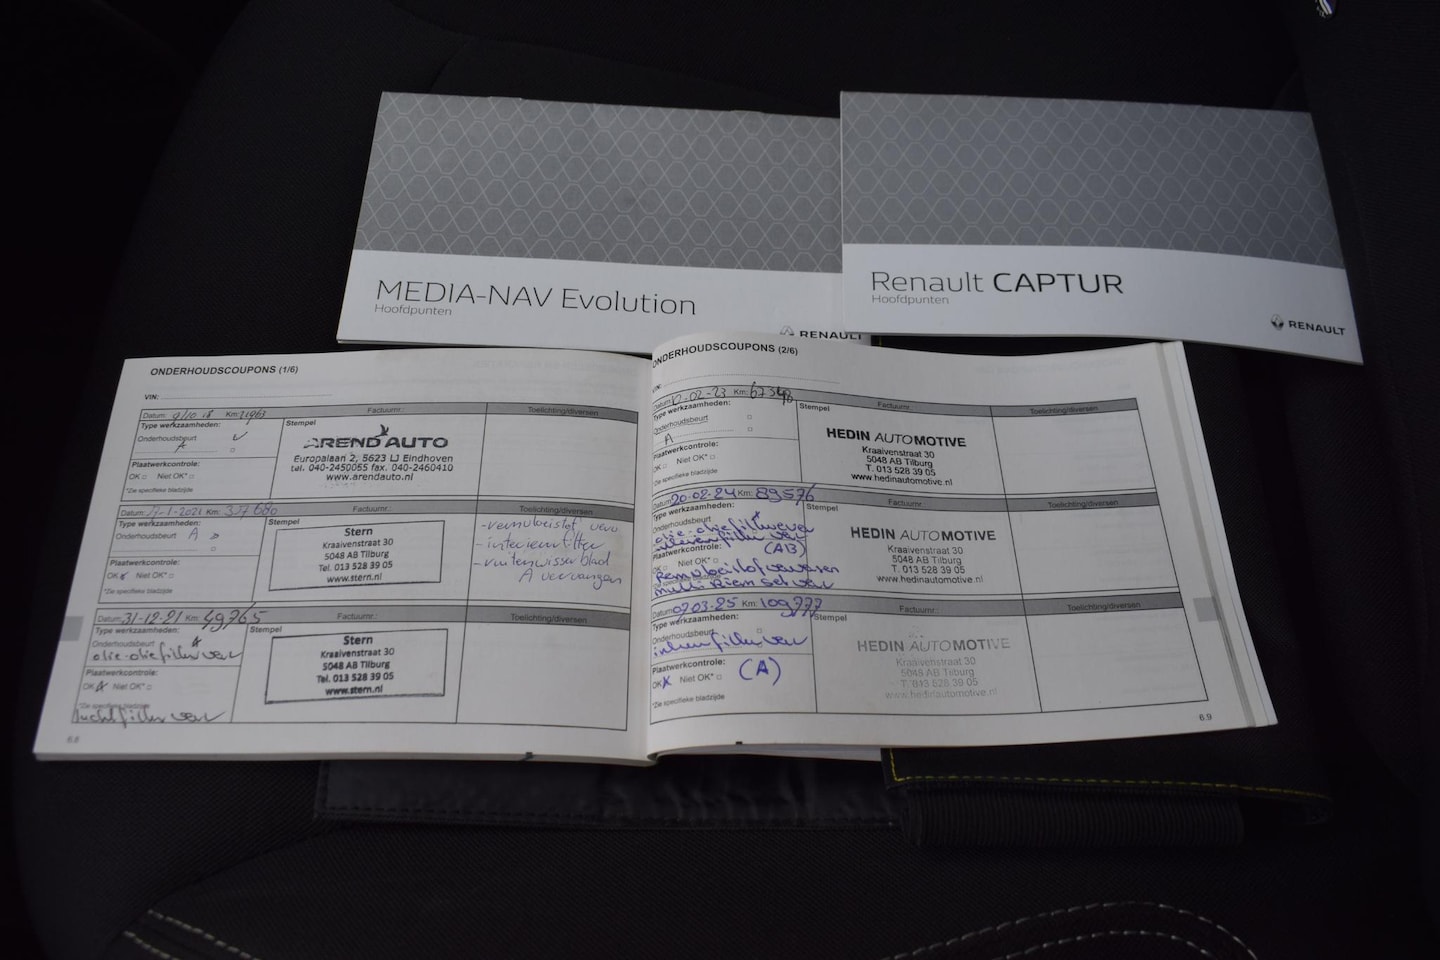 MEDIA-NAV Evolution
Hoofdpunten
RENAULT
Renault CAPTUR
Hoofdpunten
RENAULT
ONDERHOUDSCOUPONS (1/6)
VIN:
Datum: Km: Factuurnr.: Toelichting/diversen
Type werkzaamheden: Stempel
Onderhoudsbeurt
A
Plaatwerkcontrole:
OK Niet OK*
*Zie specifieke bladzijde
AREND AUTO
Europalaan 2, 5623 LJ Eindhoven
tel. 040-2450055 fax. 040-2460410
www.arendauto.nl
Datum: Km: Factuurnr.: Toelichting/diversen
Type werkzaamheden: Stempel
Onderhoudsbeurt A
Plaatwerkcontrole:
OK Niet OK*
*Zie specifieke bladzijde
Stern
Kraaivenstraat 30
5048 AB Tilburg
Tel. 013 528 39 05
www.stern.nl
- interieurfilter
- ruitenwisserblad
A vervangen
Datum: 31-12-21 Km: 49765 Factuurnr.: Toelichting/diversen
Type werkzaamheden: Stempel
Onderhoudsbeurt
olie-oliefilter ver
Plaatwerkcontrole:
OK Niet OK*
*Zie specifieke bladzijde
luchtfilter ver
Stern
Kraaivenstraat 30
5048 AB Tilburg
Tel. 013 528 39 05
www.stern.nl
6.8
ONDERHOUDSCOUPONS (2/6)
VIN:
Datum: Km: Factuurnr.: Toelichting/diversen
Type werkzaamheden: Stempel
Onderhoudsbeurt
A
Plaatwerkcontrole:
OK Niet OK*
*Zie specifieke bladzijde
HEDIN AUTOMOTIVE
Kraaivenstraat 30
5048 AB Tilburg
T. 013 528 39 05
www.hedinautomotive.nl
Datum: 20-02-24 Km: 89576 Factuurnr.: Toelichting/diversen
Type werkzaamheden: Stempel
Onderhoudsbeurt
olie-oliefilter ver
Plaatwerkcontrole: (AB)
Niet OK*
Remvloeistof verversen
multi Riem set ver
HEDIN AUTOMOTIVE
Kraaivenstraat 30
5048 AB Tilburg
T. 013 528 39 05
www.hedinautomotive.nl
Datum: 07-03-25 Km: 109777 Factuurnr.: Toelichting/diversen
Type werkzaamheden: Stempel
Onderhoudsbeurt
Plaatwerkcontrole:
OK Niet OK* (A)
*Zie specifieke bladzijde
HEDIN AUTOMOTIVE
Kraaivenstraat 30
5048 AB Tilburg
T. 013 528 39 05
www.hedinautomotive.nl
6.9